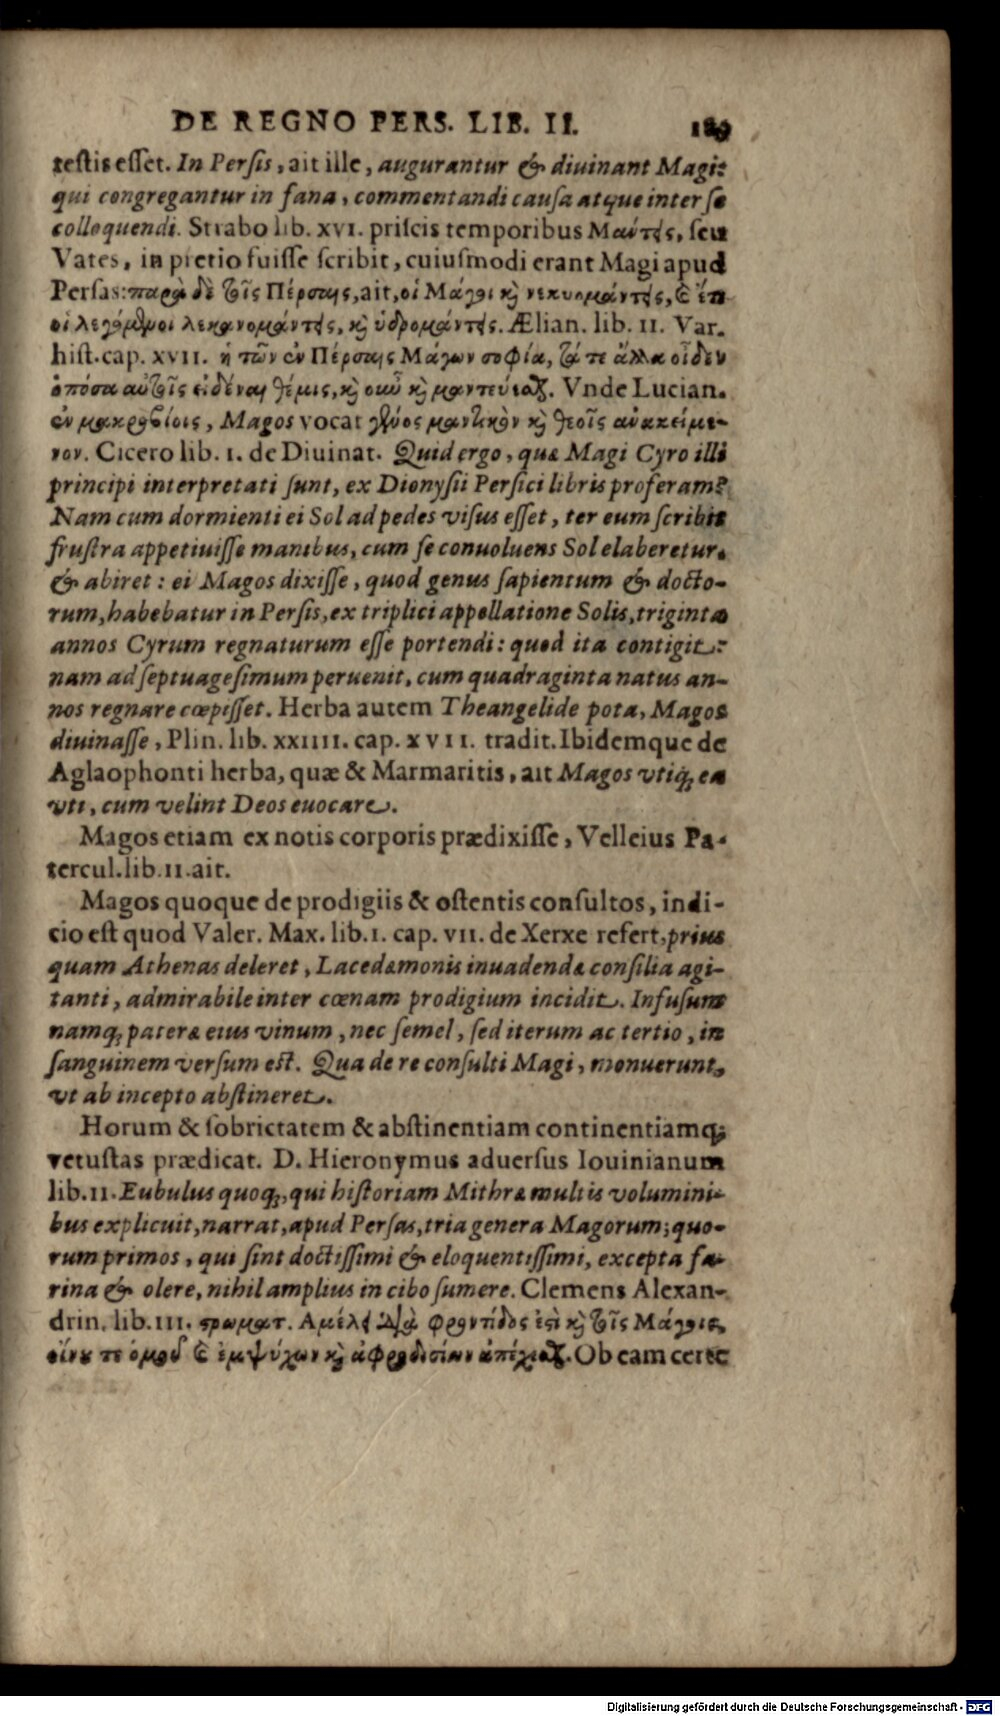 DE REGNO PERS. LIB. II. 189
testis esset. In Persis, ait ille, augurantur & diuinant Magi:
qui congregantur in fana, commentandi causa atque inter se
colloquendi. Strabo lib. XVI. priscis temporibus Μαύτεις, seu
Vates, in pretio fuisse scribit, cuiusmodi erant Magi apud
Persas: παρὰ δὲ τοῖς Πέρσαις, ait, οἱ Μάγοι καὶ νεκυομάντεις, καὶ ἔτι
οἱ λεγόμενοι λεκανομάντεις, καὶ ὑδρομάντεις. Ælian. lib. II. Var.
hist. cap. XVII. ἡ τῶν ἐν Πέρσαις Μάγων σοφία, τά τε ἄλλα οἶδεν
ὁπόσα αὐτοῖς εἰδέναι θέμις, καὶ οὖν καὶ μαντεύεσθαι. Vnde Lucian.
ἐν μακροβίοις, Magos vocat γένος μαντικὸν καὶ θεοῖς ἀνακείμε-
νον. Cicero lib. I. de Diuinat. Quid ergo, quæ Magi Cyro illi
principi interpretati sunt, ex Dionysii Persici libris proferam?
Nam cum dormienti ei Sol ad pedes visus esset, ter eum scribit
frustra appetiuisse manibus, cum se conuoluens Sol elaberetur.
& abiret: ei Magos dixisse, quod genus sapientum & docto-
rum, habebatur in Persis, ex triplici appellatione Solis, triginta
annos Cyrum regnaturum esse portendi: quod ita contigit:
nam ad septuagesimum peruenit, cum quadraginta natus an-
nos regnare cœpisset. Herba autem Theangelide pota, Magos
diuinasse, Plin. lib. XXIIII. cap. XVII. tradit. Ibidemque de
Aglaophonti herba, quæ & Marmaritis, ait Magos vtiq; ea
vti, cum velint Deos euocare.
Magos etiam ex notis corporis prædixisse, Velleius Pa-
tercul. lib. II. ait.
Magos quoque de prodigiis & ostentis consultos, indi-
cio est quod Valer. Max. lib. I. cap. VII. de Xerxe refert, prius
quam Athenas deleret, Lacedæmonis inuadendæ consilia agi-
tanti, admirabile inter cœnam prodigium incidit. Infusum
namq; pateræ eius vinum, nec semel, sed iterum ac tertio, in
sanguinem versum est. Qua de re consulti Magi, monuerunt,
vt ab incepto abstineret.
Horum & sobrietatem & abstinentiam continentiamq;
vetustas prædicat. D. Hieronymus aduersus Iouinianum
lib. II. Eubulus quoq;, qui historiam Mithræ multis volumini-
bus explicuit, narrat, apud Persas, tria genera Magorum; quo-
rum primos, qui sint doctissimi & eloquentissimi, excepta fa-
rina & olere, nihil amplius in cibo sumere. Clemens Alexan-
drin. lib. III. στρωματ. Αμέλει διὰ φροντίδος ἐστὶ καὶ τοῖς Μάγοις,
οἴνου τε ὁμοῦ καὶ ἐμψύχων καὶ ἀφροδισίων ἀπέχεσθαι. Ob eam certe
Digitalisierung gefördert durch die Deutsche Forschungsgemeinschaft - DFG